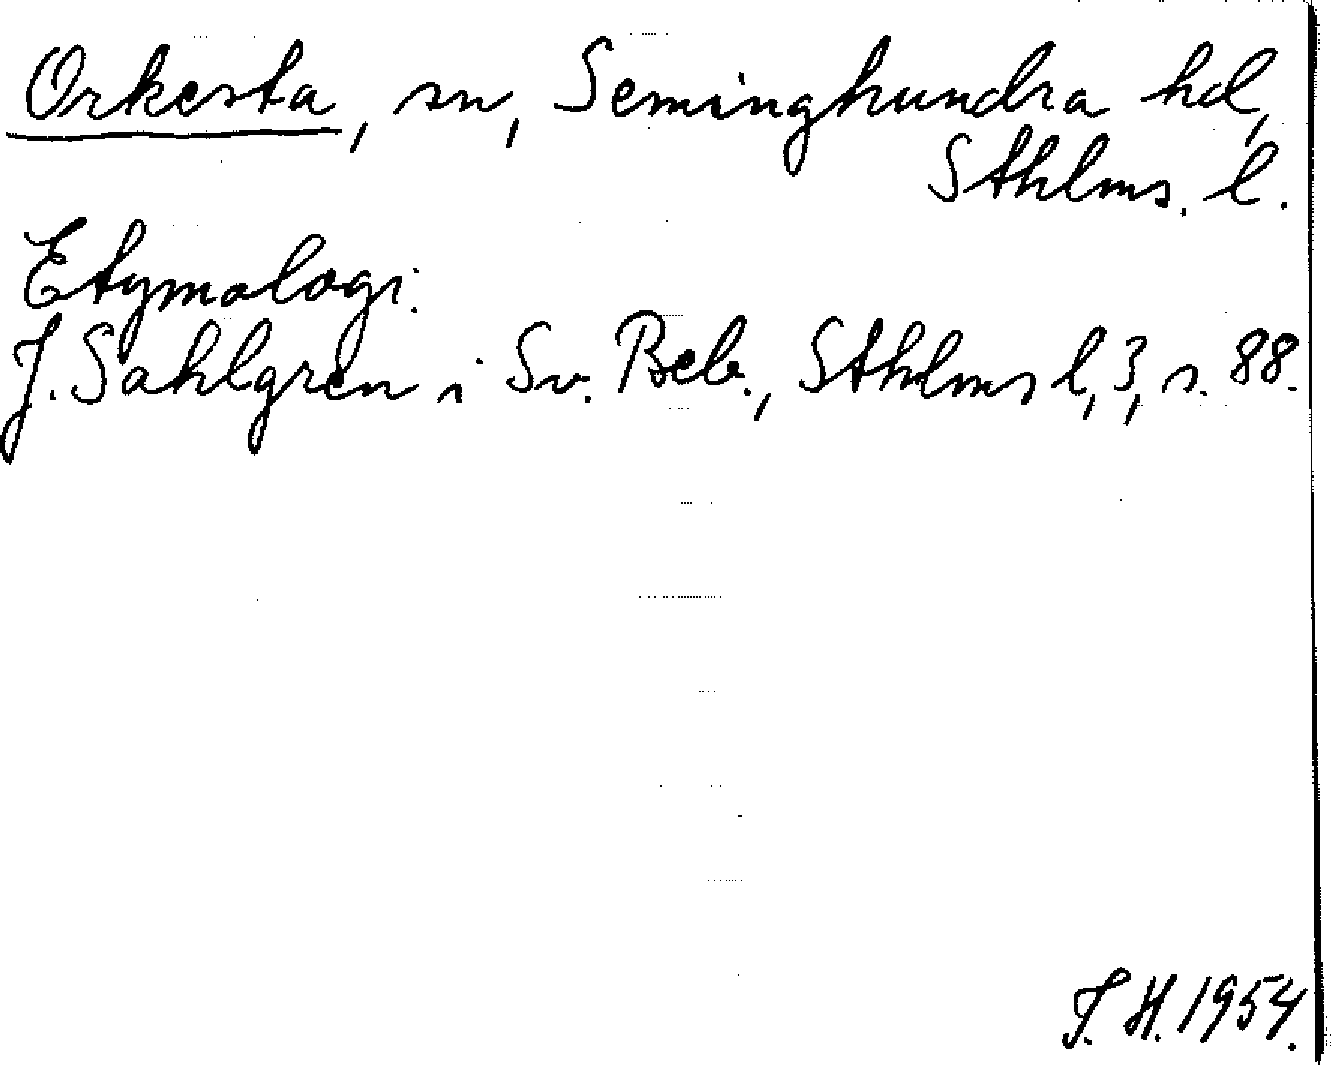 Orkesta, sn, Seminghundra hd,
Sthlms. l.
Etymologi.
J. Sahlgren i Sv. Beb., Sthlms l, 3, s. 88.
J. H. 1954.